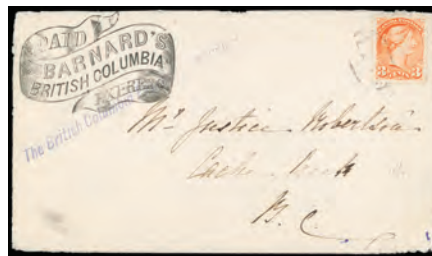 PAID
BARNARD'S
BRITISH COLUMBIA
EXPRE
The British Colum
3 3
Mr Justice Robertson
Cache Creek
B.C.